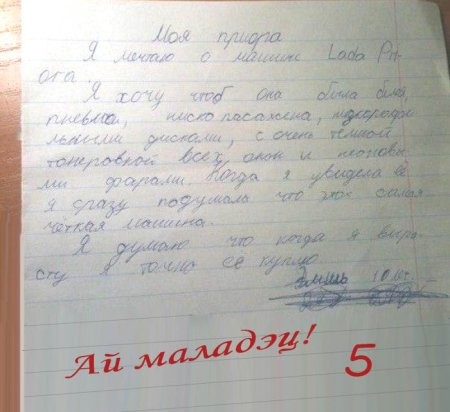 Моя приора
Я мечтаю о машине Lada Pri-
ora.
Я хочу чтоб она была бела,
пневма, ниско пасажена,
льными дисками, с очень тёмной
тонеровкой всех окон и неоновы-
ми фарами. Когда я увидела её
я сразу подумала что это самая
чёткая машина.
Я думаю что когда я выра-
сту я точно её куплю.
10 лет.
Ай маладэц! 5